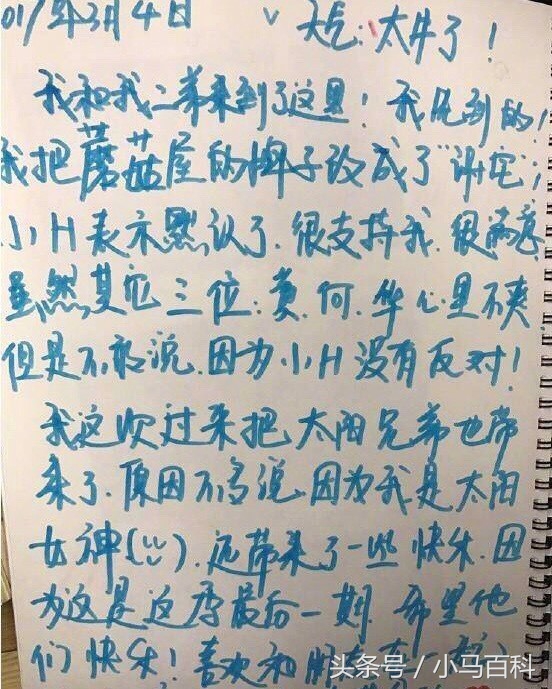 01/年3月4日 ∨ 天气:太牛了!
我和我二弟来到了这里!我先到的!
我把蘑菇屋的牌子改成了"谢宅";
小H表示默认了.很支持我.很满意
虽然其它三位:黄.何.华心里不爽
但是不敢说.因为小H没有反对!
我这次过来把太阳兄弟也带
来了.原因不多说.因为我是太阳
女神(:).还带来了一些快乐.因
为这是这季最后一期.希望他
们快乐!喜欢和
头条号 / 小马百科